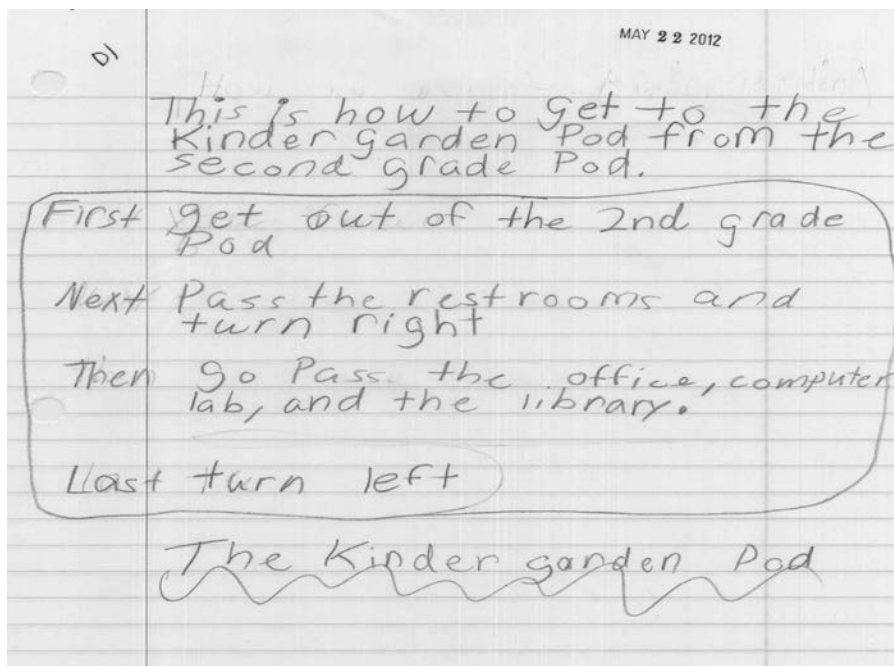 D1
MAY 22 2012
This is how to get to the
Kinder garden Pod from the
second grade Pod.
First get out of the 2nd grade
Pod
Next Pass the restrooms and
turn right
Then go Pass the office, computer
lab, and the library.
Last turn left
The Kinder garden Pod